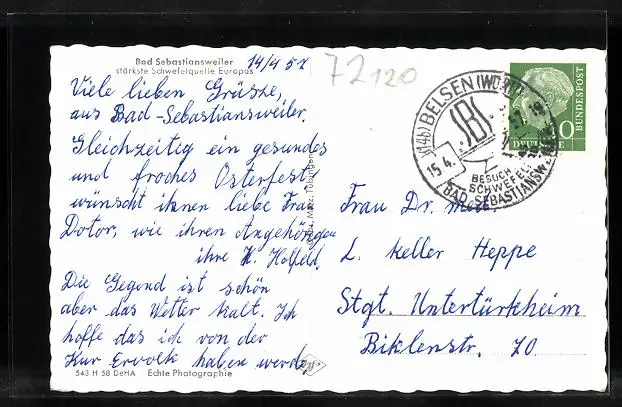 Bad Sebastiansweiler
stärkste Schwefelquelle Europas
14/4 57
72120
Viele lieben Grüsze,
aus Bad-Sebastiansweiler.
Gleichzeitig ein gesundes
und froches Osterfest
wünscht ihnen liebe Frau
Dotor, wie ihren Angehörigen
ihre H. Holfeld.
Die Gegend ist schön
aber das Wetter kalt. Ich
hoffe das ich von der
Kur Ervolk haben werde,
543 H 58 DeHA Echte Photographie
Metz, Tübingen
(14b) BELSEN (WÜRTT)
15.4.
BESUCHT
SCHWEFEL
BAD SEBASTIANSW
DEUTSCHE BUNDESPOST
Frau Dr. med.
L. Keller Heppe
Stgt. Untertürkheim
Biklenstr. 70.